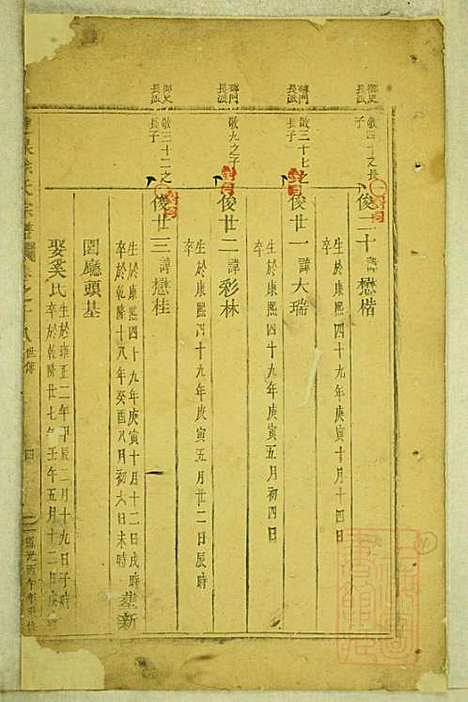 敬四十之長
子
俊二十 諱懋楷
生於康熙四十九年庚寅十月十四日
卒
敬三十七
長子
俊廿一 諱大瑞
生於康熙四十九年庚寅五月初四日
卒
敬九之子
俊廿二 諱彩林
生於康熙四十九年庚寅五月廿二日辰時
卒
敬三十二之
長子
俊廿三 諱懋桂
生於康熙四十九年庚寅十月十二日戌時
卒於乾隆十八年癸酉八月初六日未時
塟新
圖廳頭基
娶奚氏
生於雍正二年甲辰二月十九日子時
卒於乾隆廿七年壬午五月十二日
氏宗譜
世傳
四